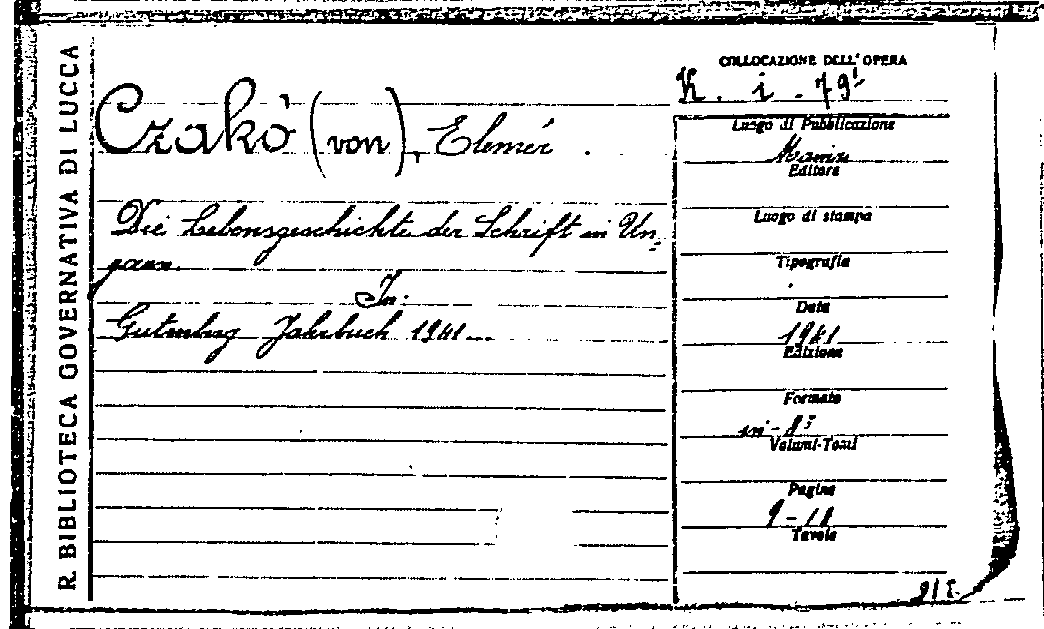 R. BIBLIOTECA GOVERNATIVA DI LUCCA
COLLOCAZIONE DELL'OPERA
K. i. 79
Czakò (von), Elemér.
Die Lebensgeschichte der Schrift in Un-
garn.
In:
Gutenberg Jahrbuch 1941...
Luogo di Pubblicazione
Mainz
Editore
Luogo di stampa
Tipografia
Data
1941
Edizione
Formato
in-8°
Volumi-Tomi
Pagine
9-18
Tavole